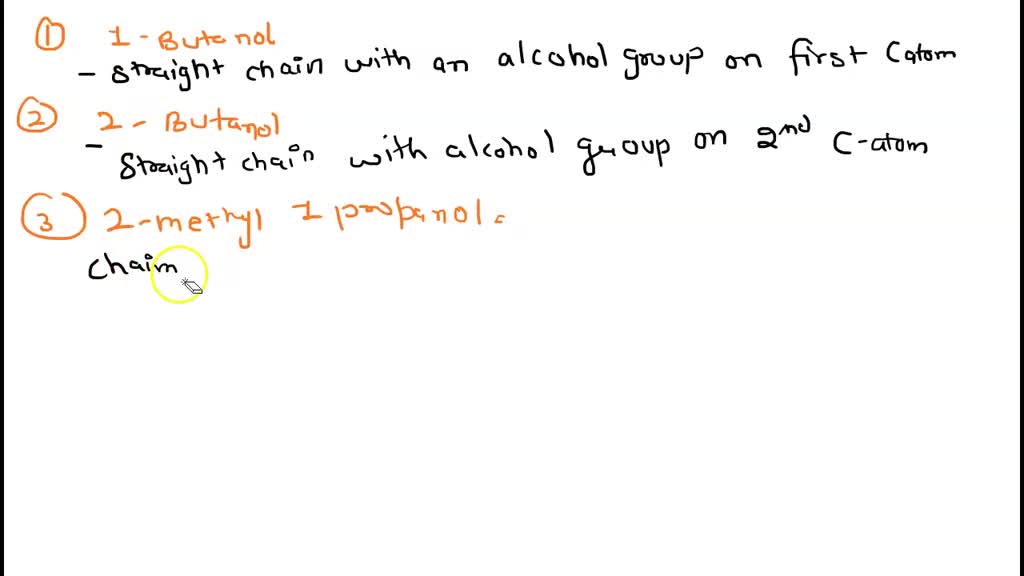 ① 1 - Butanol
- straight chain with an alcohol group on first C atom
② 2 - Butanol
- straight chain with alcohol group on 2nd C-atom
③ 2-methyl 1 propanol
chain